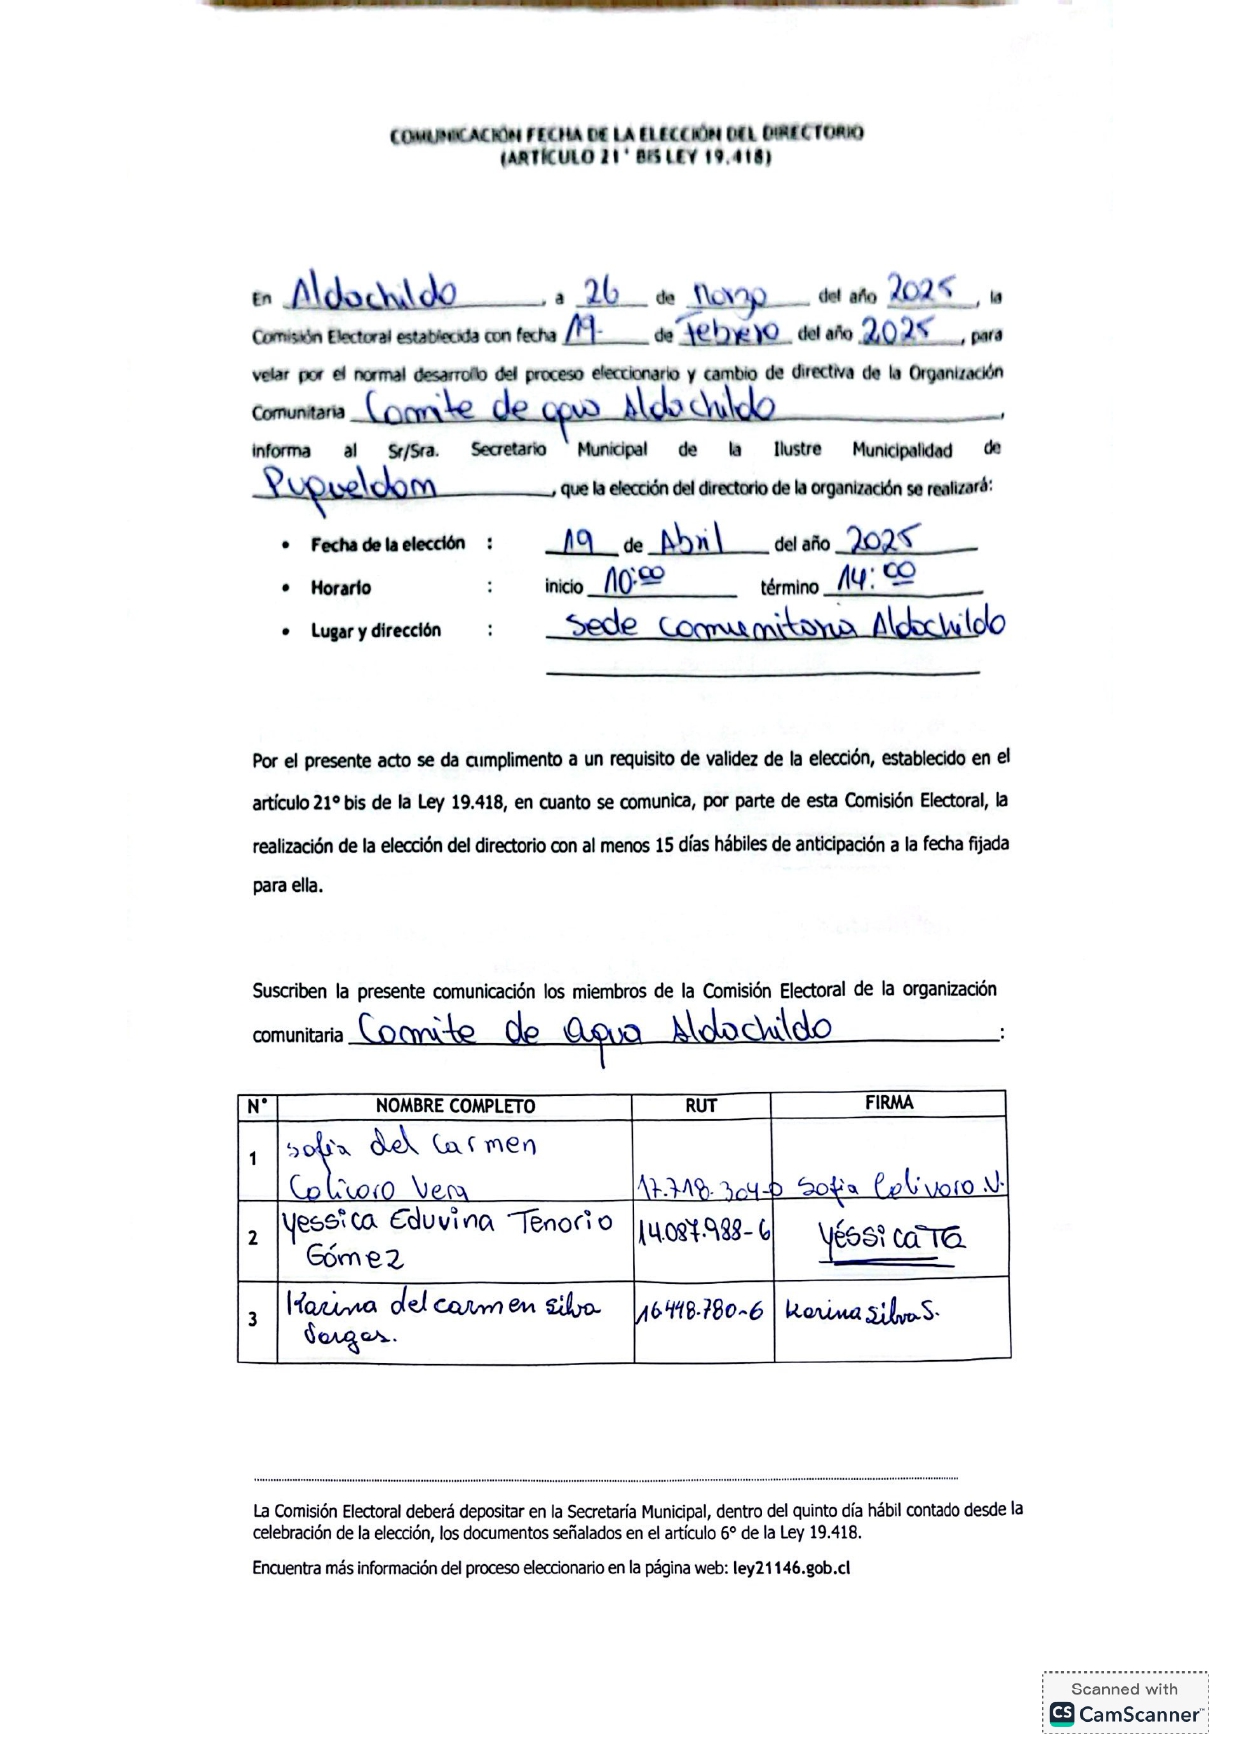 COMUNICACIÓN FECHA DE LA ELECCIÓN DEL DIRECTORIO
(ARTÍCULO 21° BIS LEY 19.418)
En Aldachildo, a 26 de Marzo del año 2025, la
Comisión Electoral establecida con fecha 19- de Febrero del año 2025, para
velar por el normal desarrollo del proceso eleccionario y cambio de directiva de la Organización
Comunitaria Comite de agua Aldachildo,
informa al Sr/Sra. Secretario Municipal de la Ilustre Municipalidad de
Puqueldon, que la elección del directorio de la organización se realizará:
• Fecha de la elección : 19 de Abril del año 2025
• Horario : inicio 10:00 término 14:00
• Lugar y dirección : Sede comunitaria Aldachildo
Por el presente acto se da cumplimento a un requisito de validez de la elección, establecido en el
artículo 21° bis de la Ley 19.418, en cuanto se comunica, por parte de esta Comisión Electoral, la
realización de la elección del directorio con al menos 15 días hábiles de anticipación a la fecha fijada
para ella.
Suscriben la presente comunicación los miembros de la Comisión Electoral de la organización
comunitaria Comite de agua Aldachildo:
N° NOMBRE COMPLETO RUT FIRMA
Sofia del Carmen
1
Colivoro Vera 17.718.304-0 Sofia Colivoro V.
Yessica Eduvina Tenorio 14.087.988-6 YéssicaTG
2
Gómez
Karina del carmen Silva 16.448.780-6 Karina Silva S.
3
Vargas.
La Comisión Electoral deberá depositar en la Secretaría Municipal, dentro del quinto día hábil contado desde la
celebración de la elección, los documentos señalados en el artículo 6° de la Ley 19.418.
Encuentra más información del proceso eleccionario en la página web: ley21146.gob.cl
Scanned with
CS CamScanner